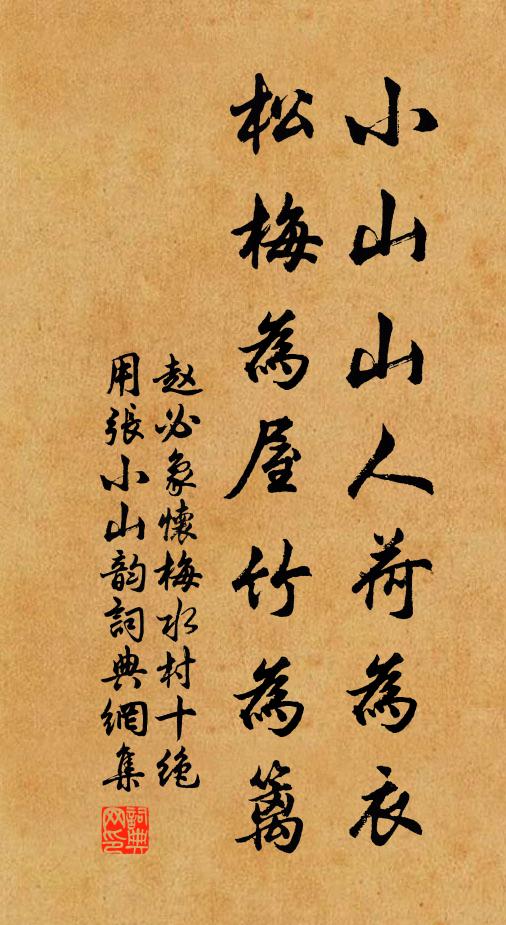 小山山人荷為衣
松梅為屋竹為籬
赵必象懷梅水村十绝
用張小山韵詞典網集
詞典网印